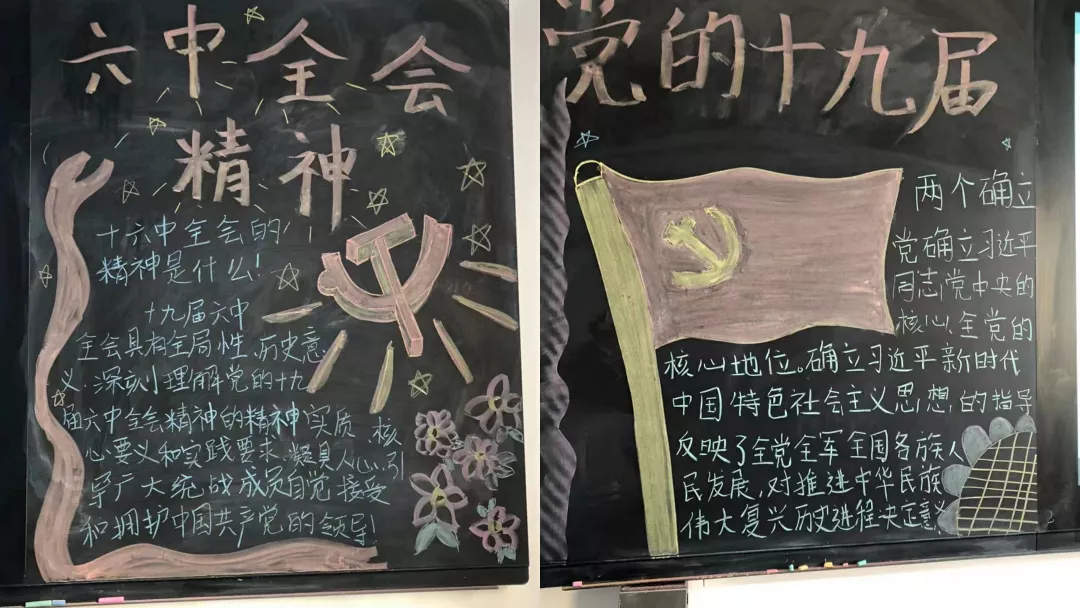 六中全会
精神
十六中全会的
精神是什么!
十九届六中
全会具有全局性、历史意
义,深刻理解党的十九
届六中全会精神的精神实质、核
心要义和实践要求,凝具人心,引
导广大统战成员自觉接受
和拥护中国共产党的领导!
党的十九届
两个确立
党确立习近平
同志党中央的
核心、全党的
核心地位。确立习近平新时代
中国特色社会主义思想,的指导
反映了全党全军全国各族人
民发展,对推进中华民族
伟大复兴历史进程决定意义